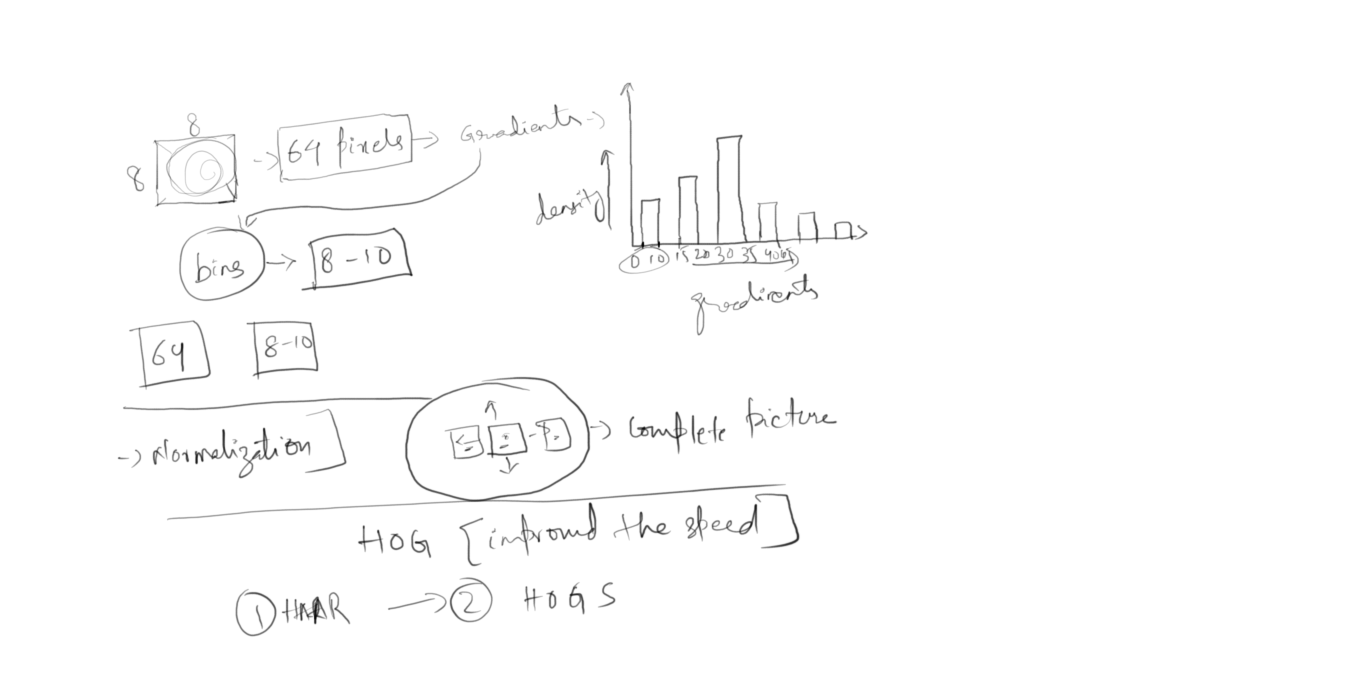 8
8 -> 64 pixels -> Gradients ->
density
bins -> 8-10
0 10 15 20 30 35 40 45
gradients
64 8-10
-> Normalization] -> Complete picture
HOG [improved the speed]
① HAAR -> ② HOGS